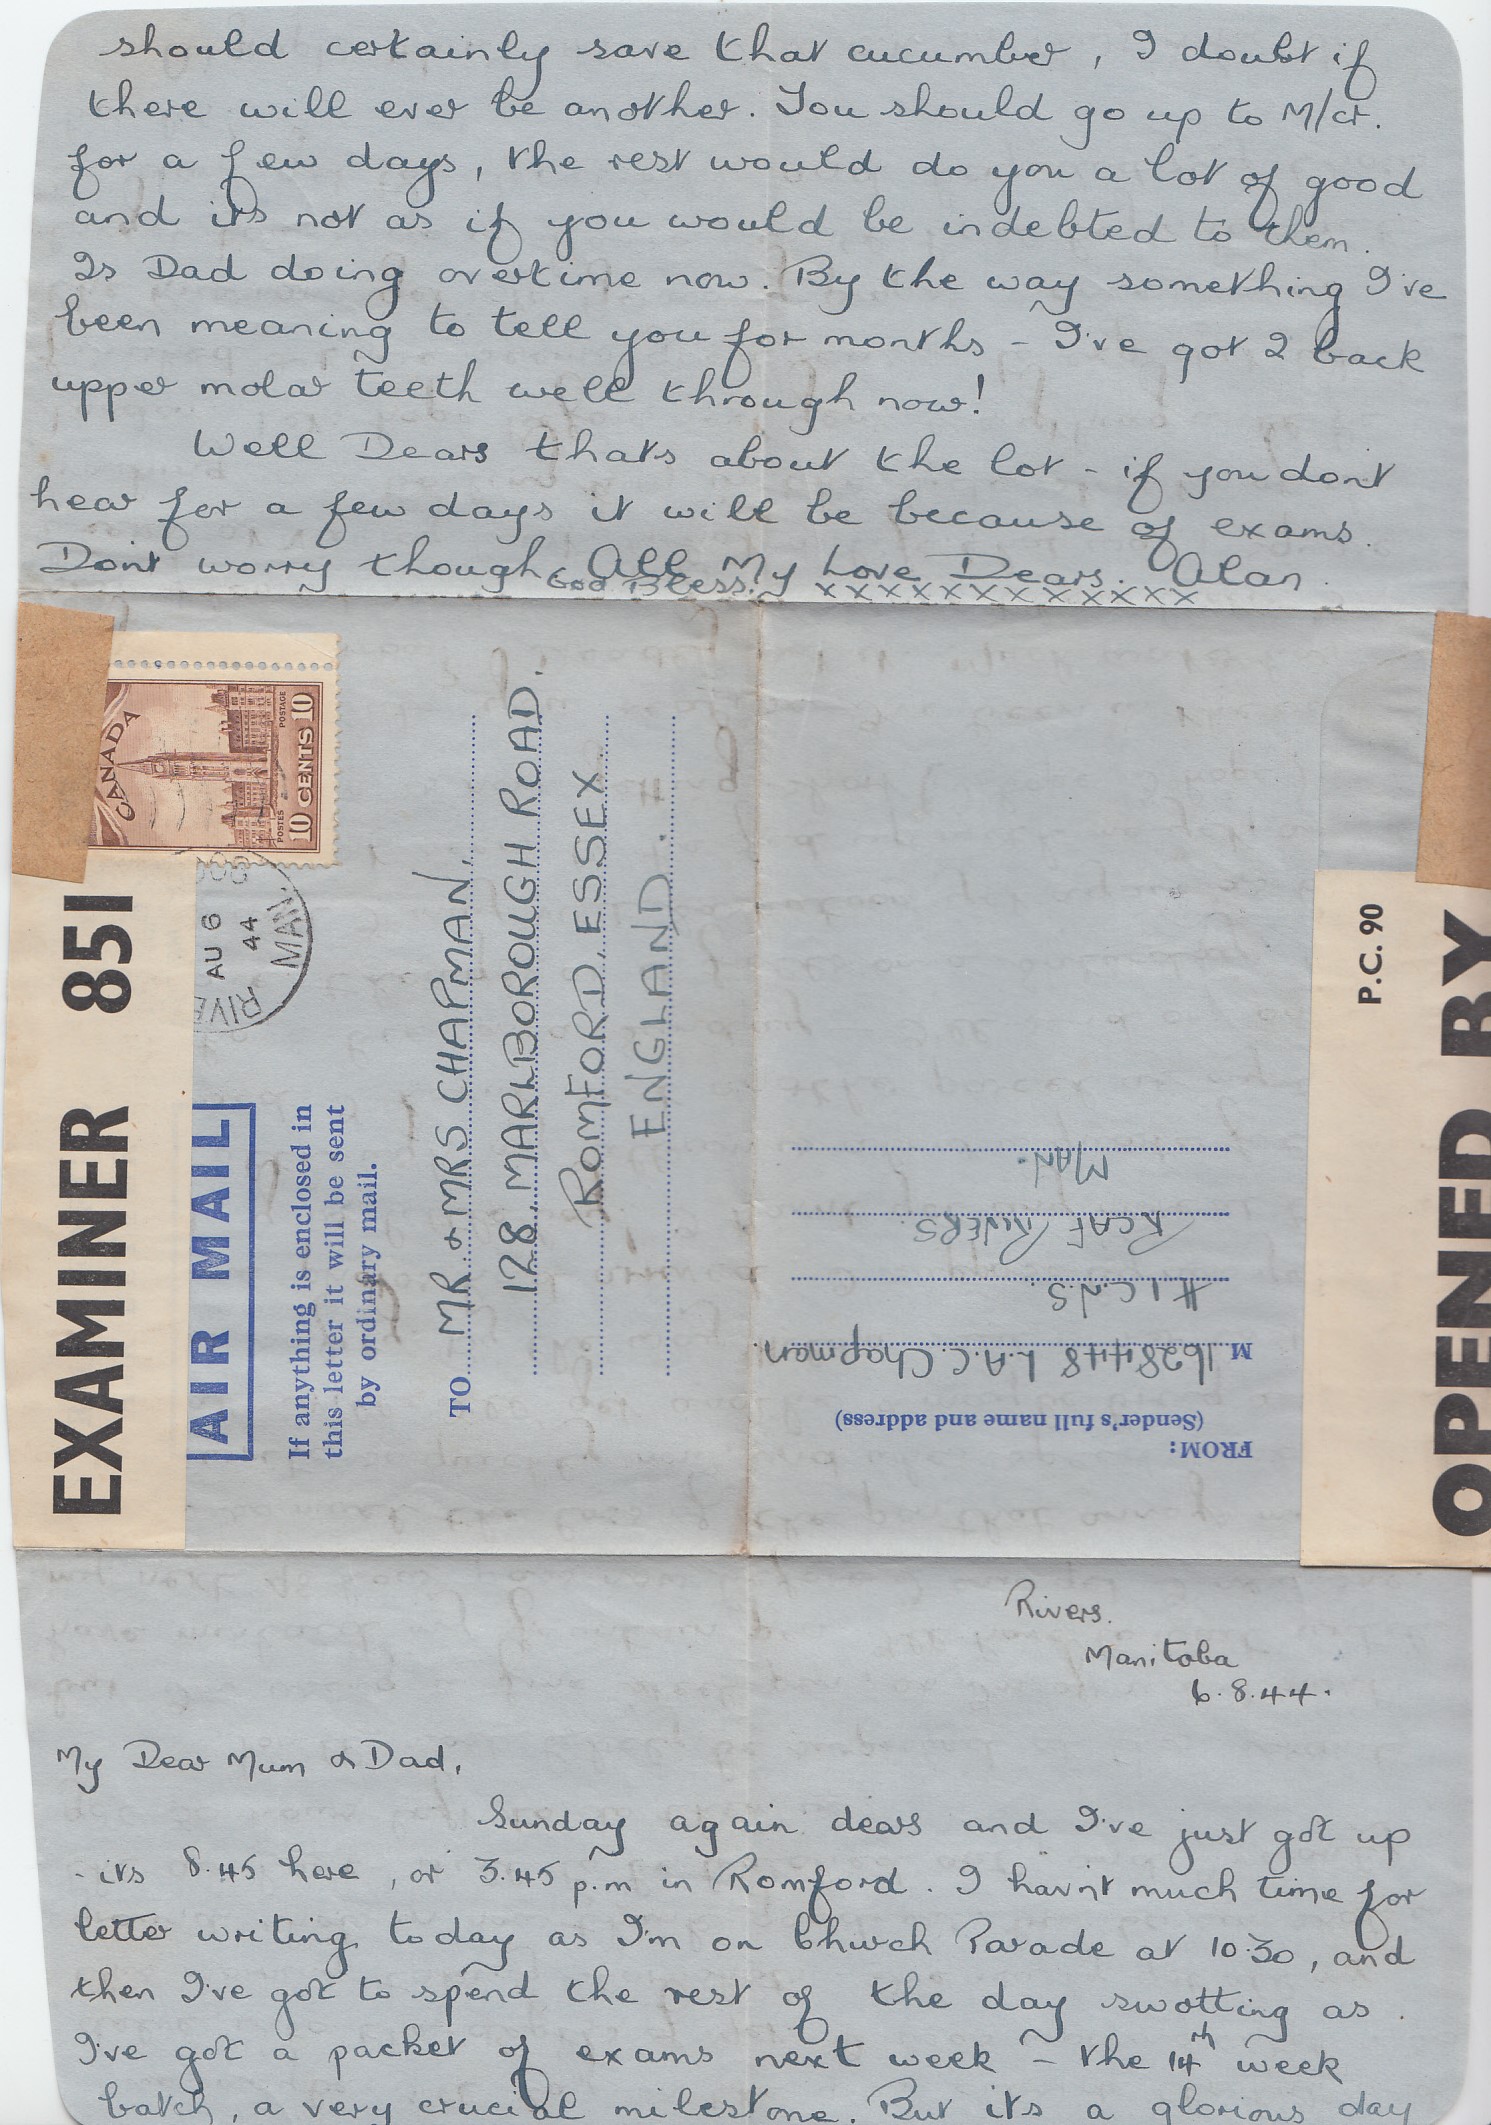 should certainly save that cucumber, I doubt if
there will ever be another. You should go up to M/cr.
for a few days, the rest would do you a lot of good
and its not as if you would be indebted to them.
Is Dad doing overtime now. By the way something I've
been meaning to tell you for months – I've got 2 back
upper molar teeth well through now!
Well Dears thats about the lot – if you dont
hear for a few days it will be because of exams.
Dont worry though, All My Love Dears. Alan.
God Bless. xxxxxxxxxxxxx
CANADA
POSTES POSTAGE
10 CENTS 10
AU 6
44
MAN.
EXAMINER 851
AIR MAIL
If anything is enclosed in
this letter it will be sent
by ordinary mail.
TO MR & MRS CHAPMAN.
128, MARLBOROUGH ROAD.
ROMFORD, ESSEX.
ENGLAND.
FROM:
(Sender's full name and address)
M 1628448 L.A.C. Chapman.
#1 C.N.S.
RCAF RIVERS.
MAN.
P.C. 90
OPENED BY
Rivers.
Manitoba
6.8.44.
My Dear Mum & Dad,
Sunday again dears and I've just got up
- its 8.45 here, or 3.45 p.m in Romford. I havn't much time for
letter writing today as I'm on Church Parade at 10.30, and
then I've got to spend the rest of the day swotting as
I've got a packet of exams next week – the 14th week
batch, a very crucial milestone. But its a glorious day